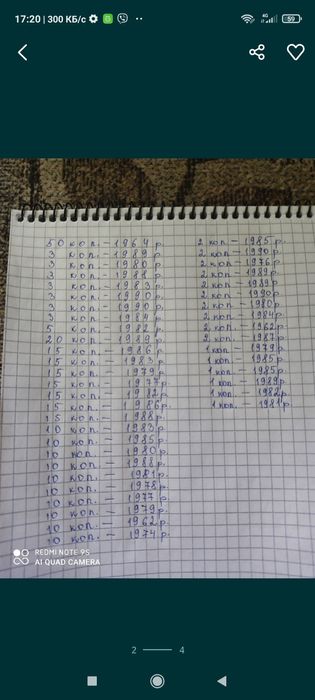 17:20 | 300 КБ/с
4G
59
50 коп. - 1964 р.
3 коп. - 1989 р
3 коп. - 1980 р
3 коп. - 1988 р.
3 коп. - 1983 р.
3 коп. - 1990 р.
3 коп. - 1990 р.
3 коп. - 1984 р.
5 коп. - 1982 р.
20 коп. - 1989 р.
15 коп. - 1986 р.
15 коп. - 1983 р.
15 коп. - 1979 р.
15 коп. - 1977 р.
15 коп. - 1982 р.
15 коп. - 1986 р.
15 коп. - 1988 р.
10 коп. - 1983 р.
10 коп. - 1985 р.
10 коп. - 1980 р.
10 коп. - 1988 р.
10 коп. - 1981 р.
10 коп. - 1978 р.
10 коп. - 1977 р.
10 коп. - 1979 р.
10 коп. - 1962 р.
10 коп. - 1974 р.
2 коп - 1985 р.
2 коп - 1990 р.
2 коп - 1976 р.
2 коп - 1989 р.
2 коп - 1989 р
2 коп - 1990 р.
2 коп - 1980 р.
2 коп - 1984 р.
2 коп - 1962 р
2 коп. - 1987 р
1 коп - 1979 р.
1 коп. - 1985 р.
1 коп. - 1985 р.
1 коп. - 1989 р.
1 коп. - 1982 р.
1 коп. - 1981 р.
REDMI NOTE 9S
AI QUAD CAMERA
2 4